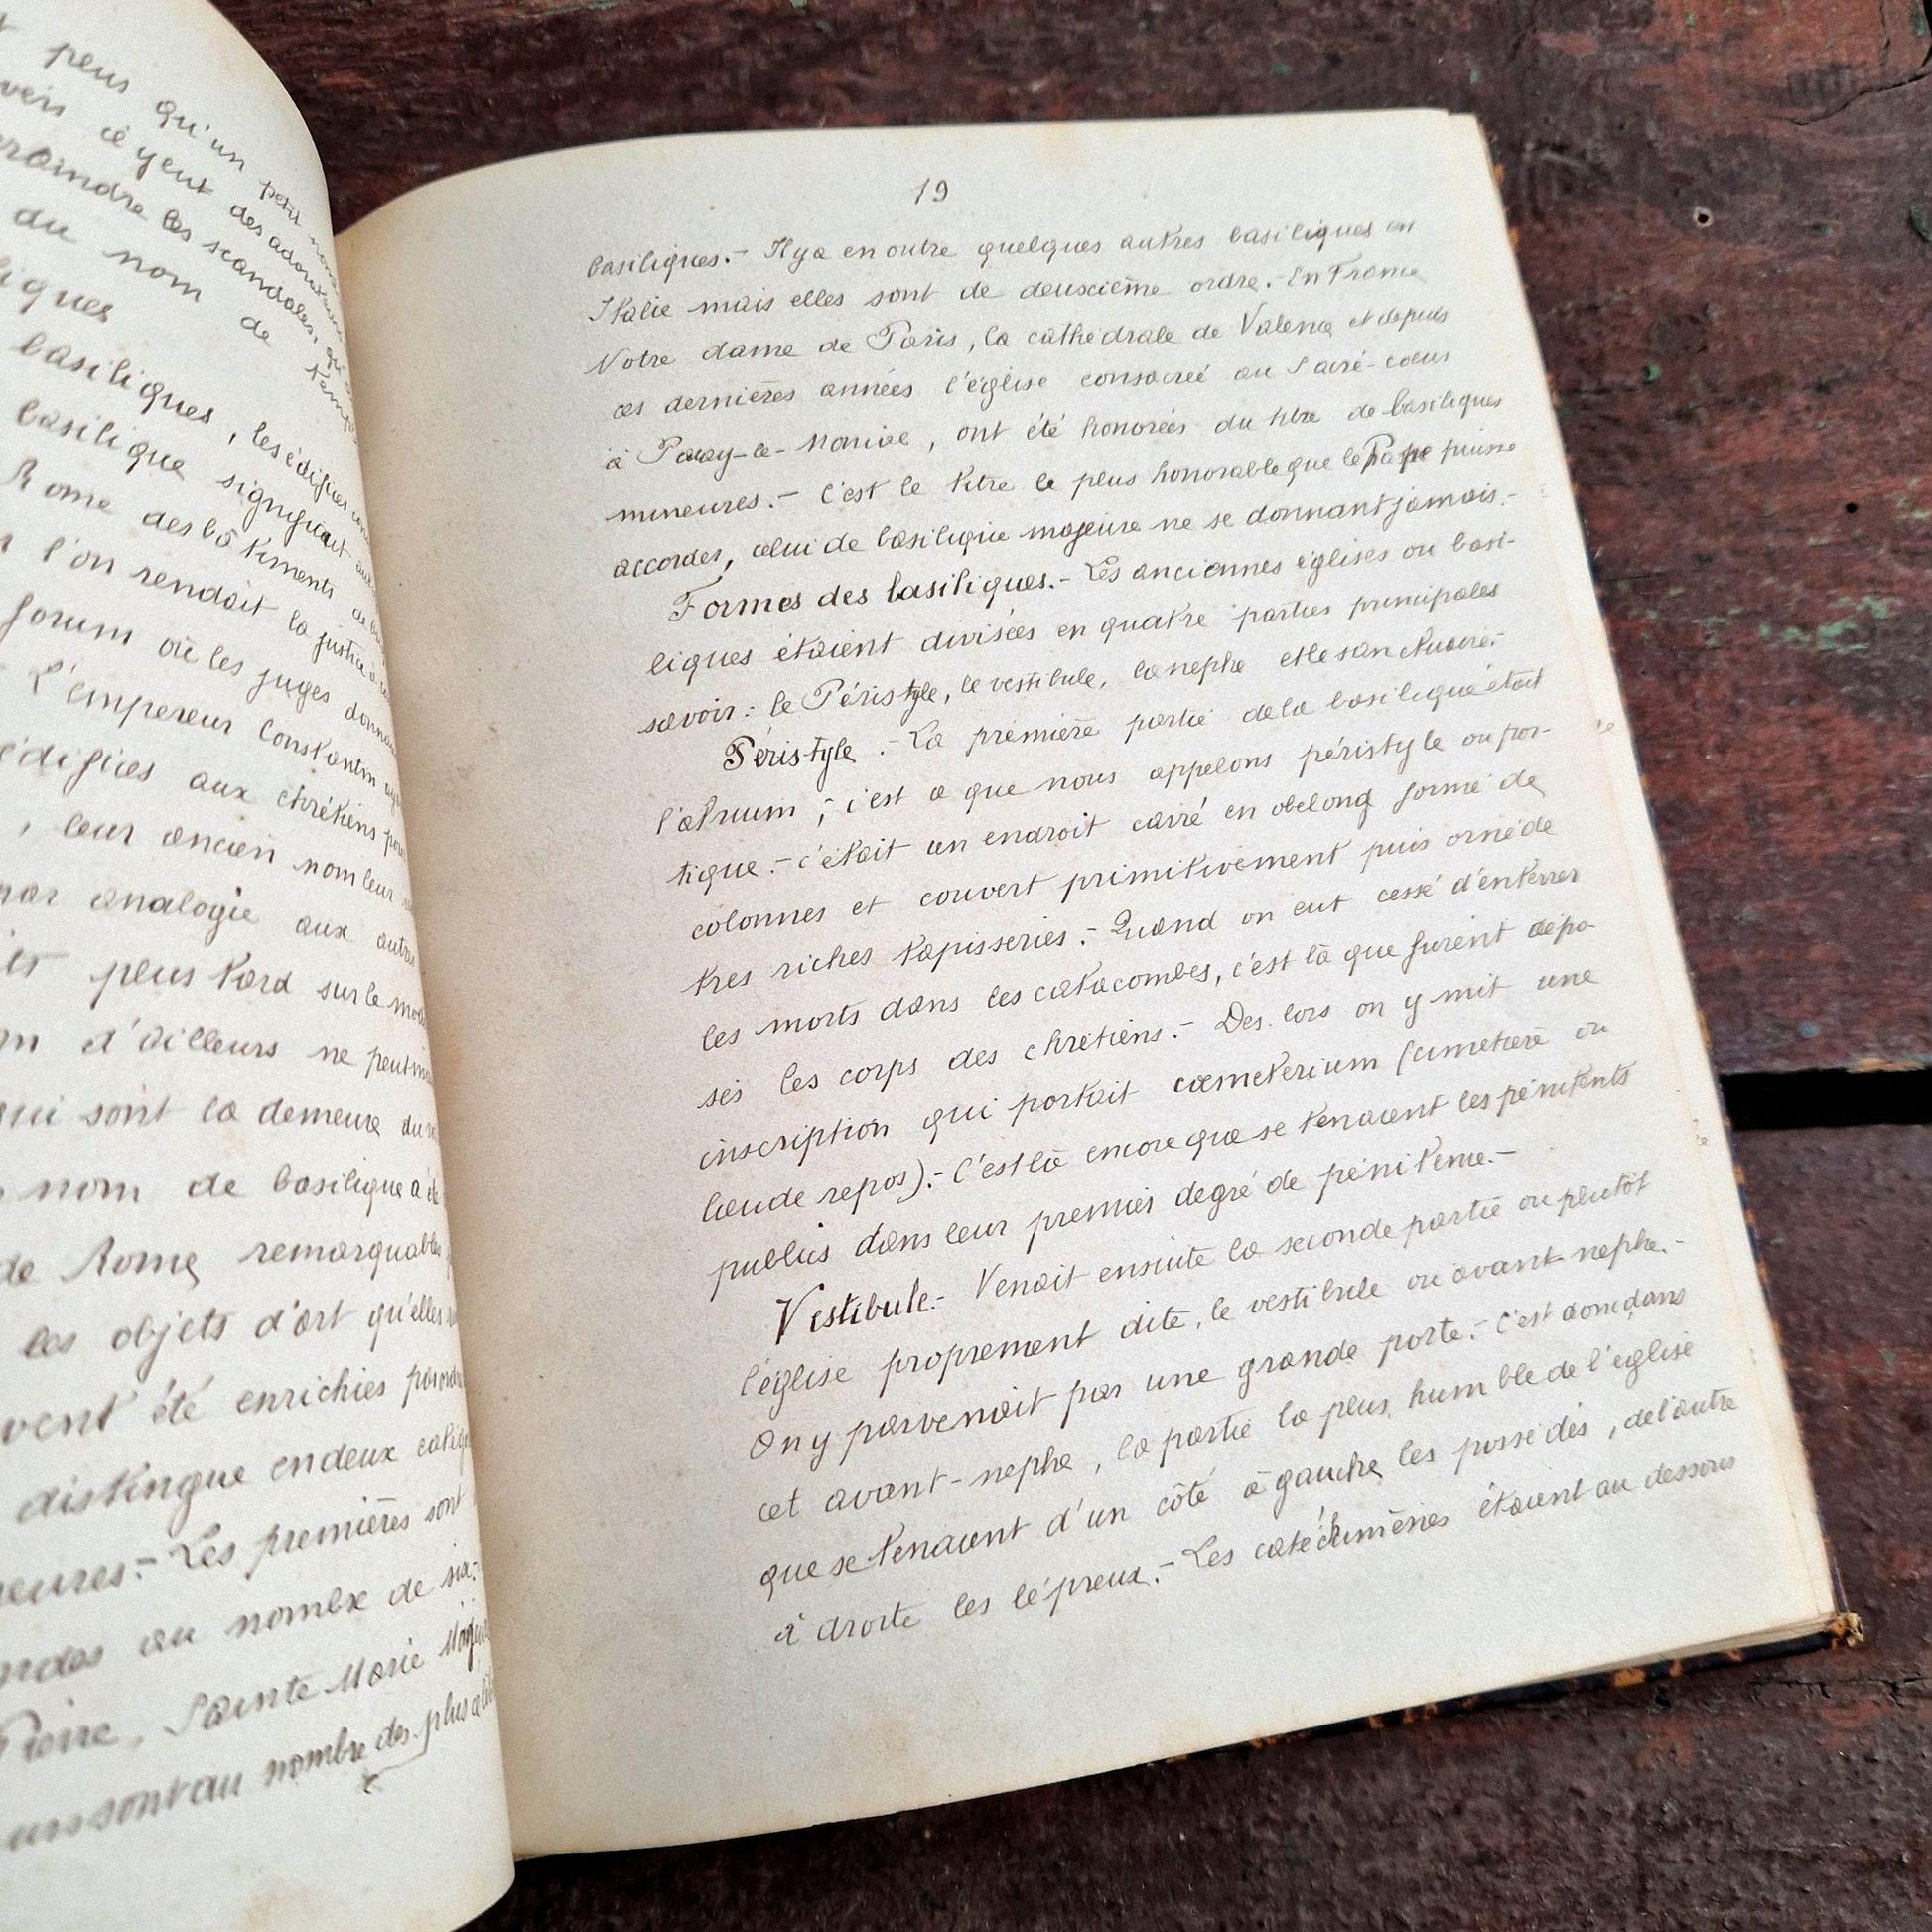 peus qu'un petit nom
vers ce yeux des adorateurs
craindre les scandales, qu
du nom de temple
iques
basiliques, les édifices con
basilique signifiait aut
Rome des bâtiments de
l'on rendait la justice à
forum où les juges donnai
L'empereur Constantin aya
édifices aux chrétiens pour
, leur ancien nom leur
par analogie aux autres
plus tard sur le mod
d'ailleurs ne peut m
qui sont la demeure du
nom de basilique a ét
de Rome, remarquables
les objets d'art qu'elles
vent été enrichies par
distingue en deux catég
eures.- Les premières sont
ndes au nombre de six.-
Pierre, Sainte Marie Majeure
sont au nombre des plus
19
basiliques.- Il y a en outre quelques autres basiliques en
Italie mais elles sont de deuxcième ordre.- En France
Notre dame de Paris, la cathédrale de Valence et depuis
ces dernières années l'église consacrée au Sacré-coeur
à Paray-le-Monial, ont été honorées du titre de basiliques
mineures.- C'est le titre le plus honorable que le Pape puisse
accorder, celui de basilique majeure ne se donnant jamais.-
Formes des basiliques.- Les anciennes églises ou basi-
liques étaient divisées en quatre parties principales
savoir: le Péristyle, le vestibule, la nephe et le sanctuaire.-
Péristyle.- La première partie de la basilique était
l'atrium; c'est ce que nous appelons péristyle ou por-
tique.- c'était un endroit carré en obelong formé de
colonnes et couvert primitivement puis orné de
tres riches tapisseries.- Quand on eut cessé d'enterrer
les morts dans les catacombes, c'est là que furent dépo-
sés les corps des chrétiens.- Des lors on y mit une
inscription qui portait cœmeterium (cimetière ou
lieu de repos).- C'est là encore que se tenaient les pénitents
publics dans leur premier degré de pénitence.-
Vestibule.- Venait ensuite la seconde partie ou plutôt
l'église proprement dite, le vestibule ou avant-nephe.-
On y parvenait par une grande porte.- C'est donc dans
cet avant-nephe, la partie la plus humble de l'eglise
que se tenaient d'un côté à gauche les possédés, de l'autre
à droite les lépreux.- Les catéchumènes étaient au dessous